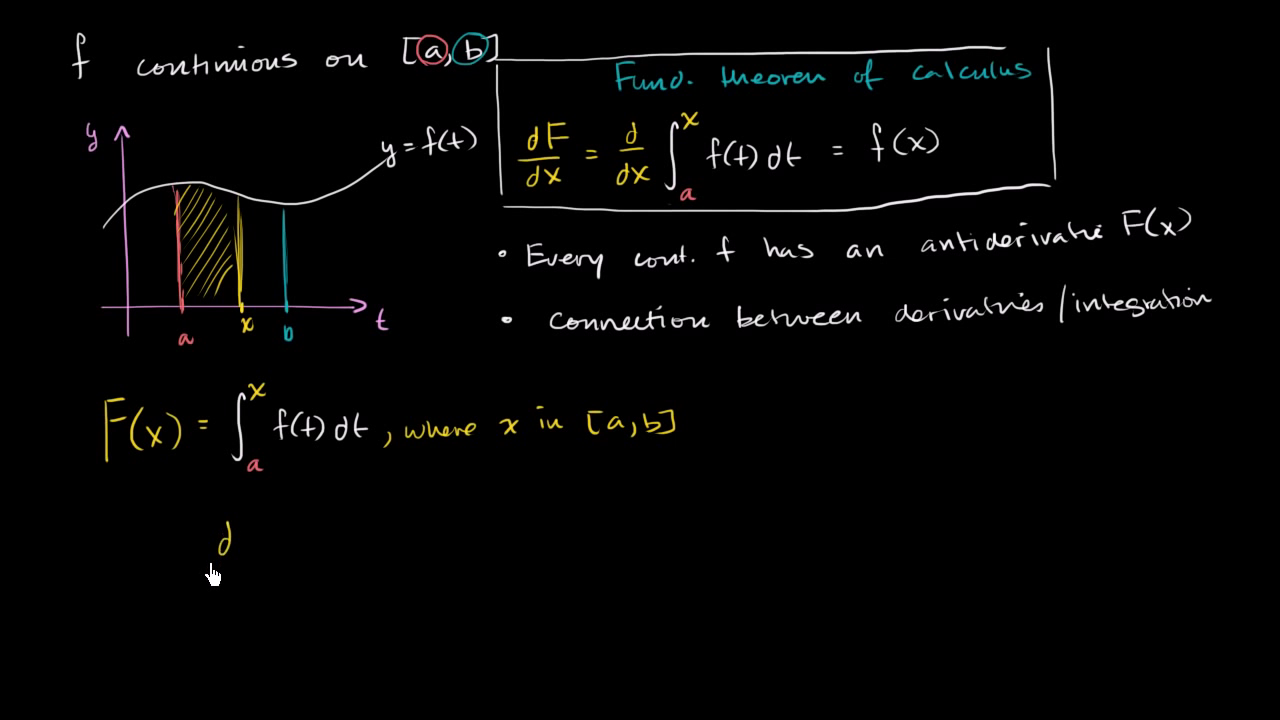 f continuous on [a, b]
Fund. theorem of calculus
dF/dx = d/dx ∫_a^x f(t) dt = f(x)
y
y = f(t)
a
x
b
t
• Every cont. f has an antiderivative F(x)
• connection between derivatives/integration
F(x) = ∫_a^x f(t) dt, where x in [a, b]
d